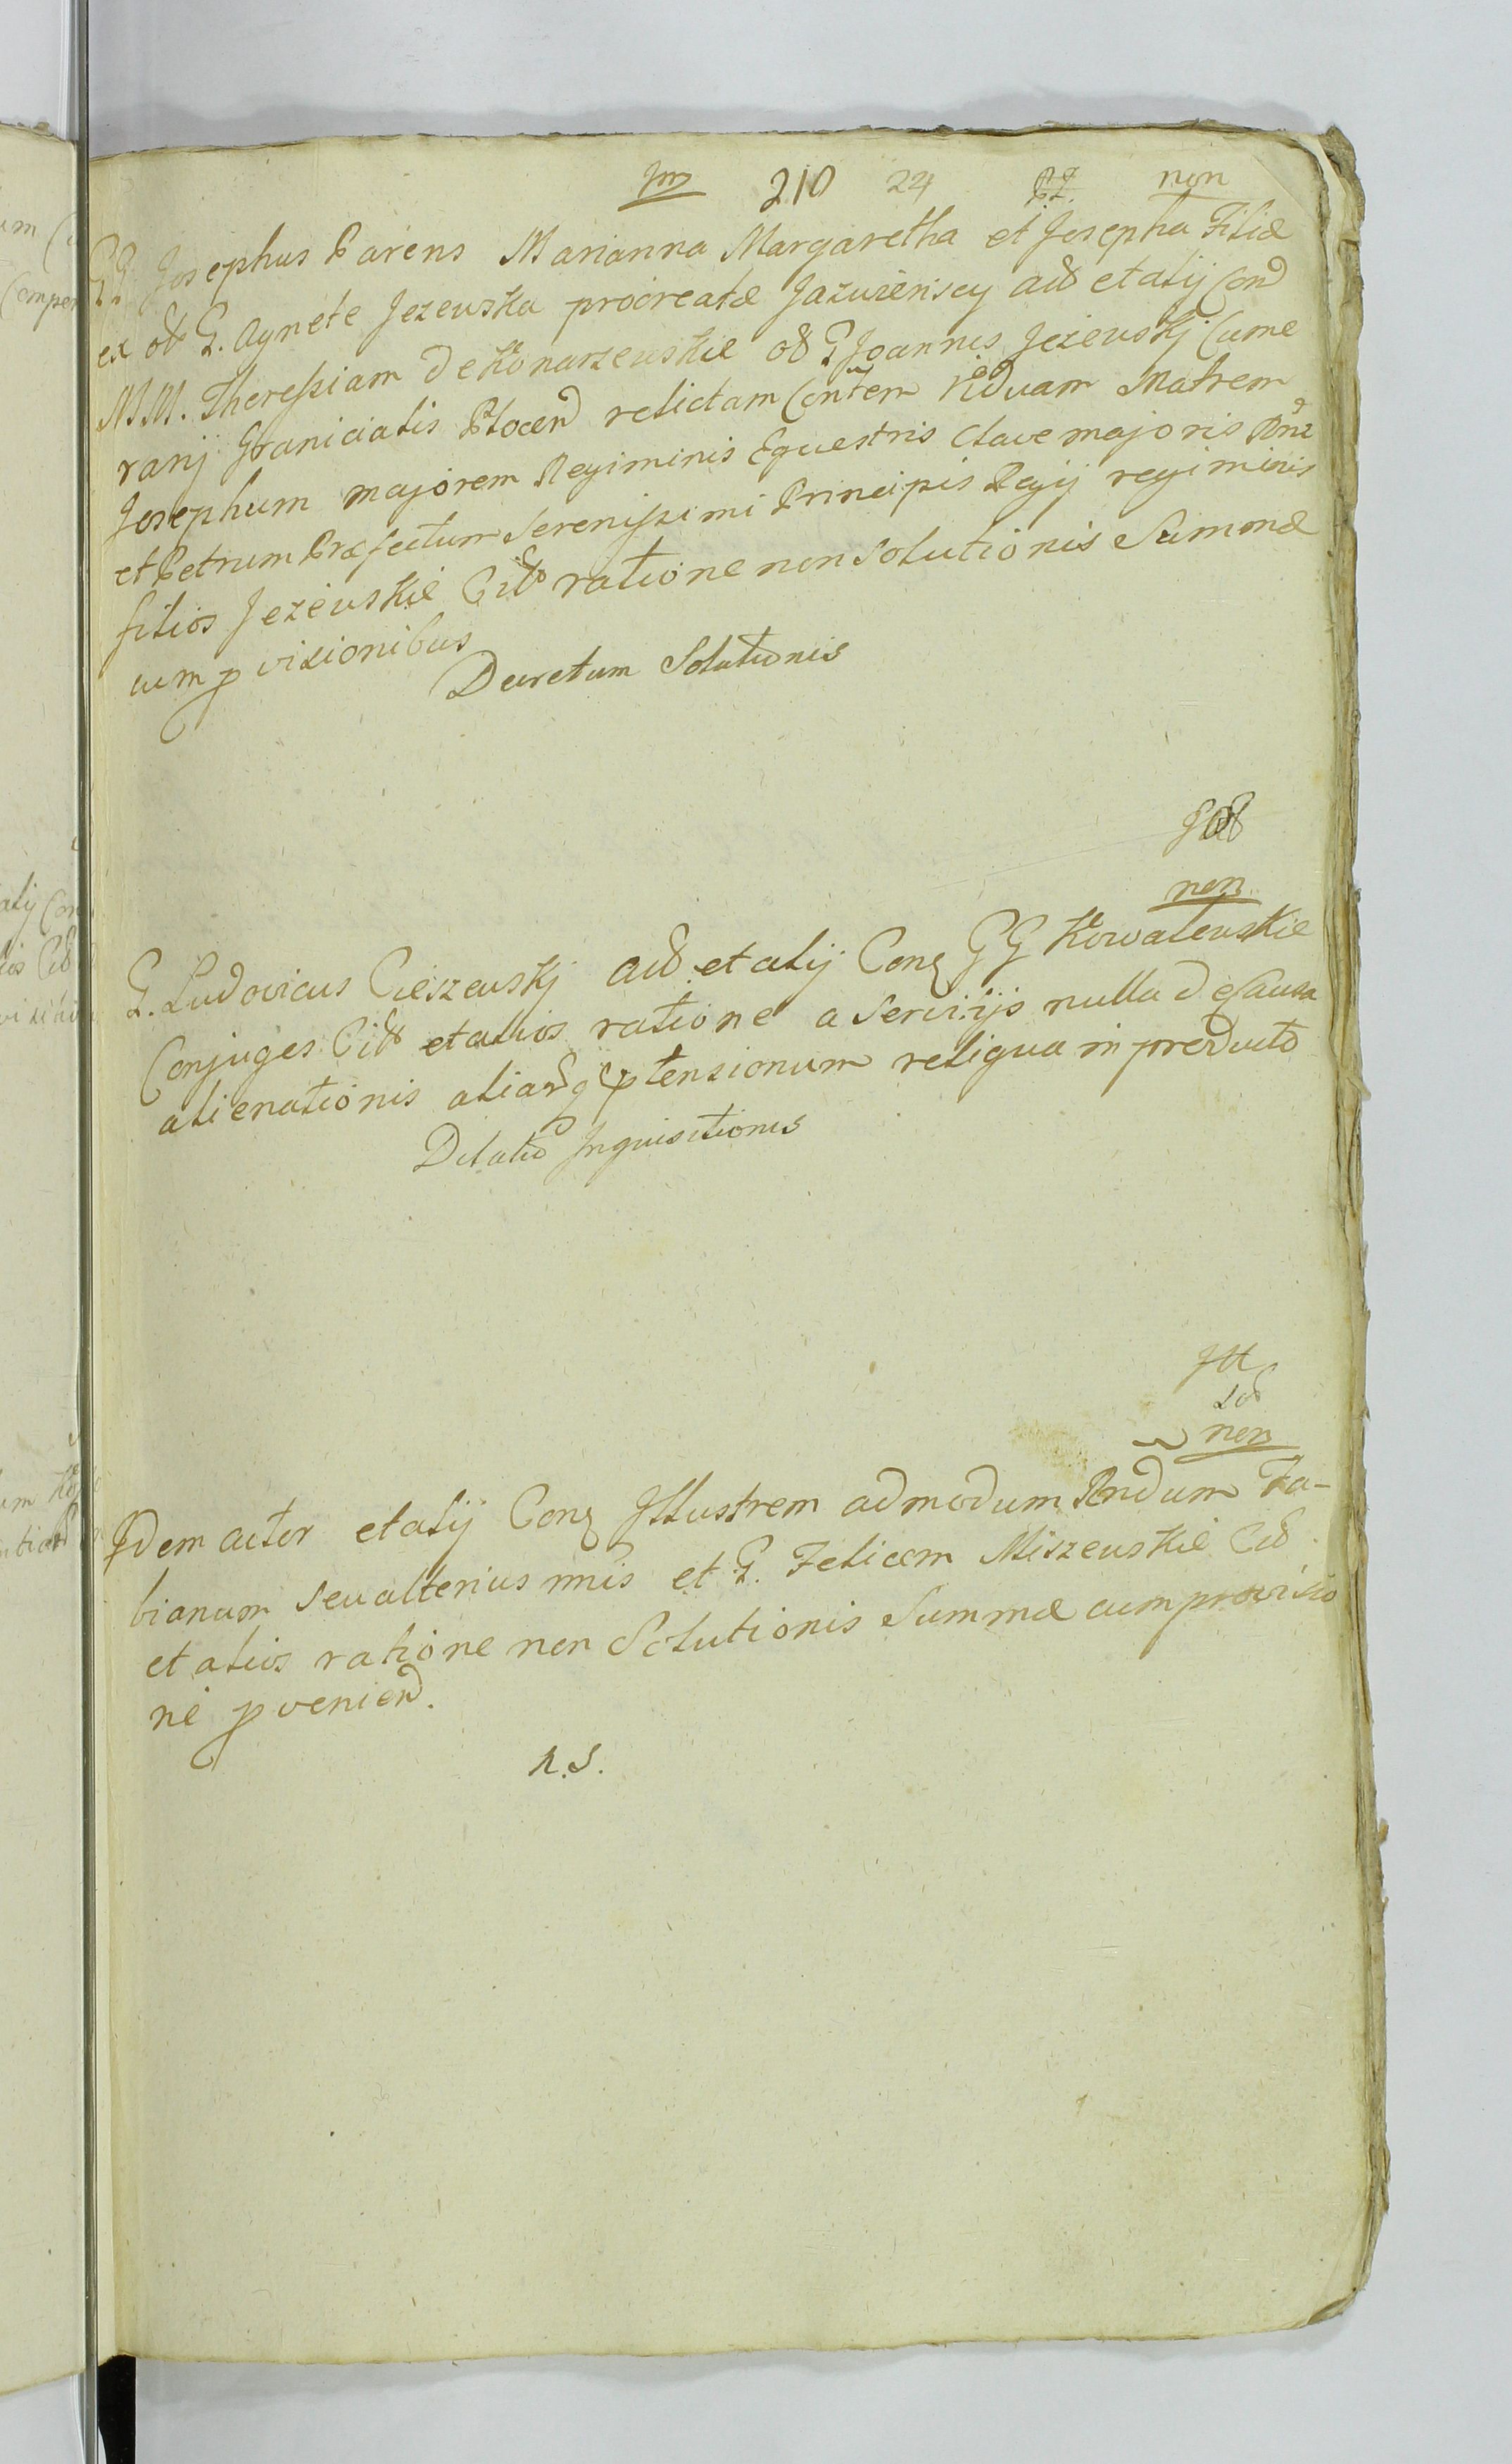 210 24 non
GG Josephus Parens Marianna Margaretha et Josepha Filiæ
ex ol G. Agnete Jezewska procreatæ Jazwienscy act et alij Con
MM. Theressiam de Konarzewskie ol G Joannis Jeżewskj Came
rarij Graniciatis Plocen relictam Contem Viduam Matrem
Josephum majorem Regiminis Equestris Clave majoris Rni
et Petrum Præfectum Serenissimi Principis Regij regiminis
filios Jezewskie Citt ratione non solutionis Summæ
cum pvisionibus
Decretum Solutionis
non
G. Ludovicus Cieszewskj act et alij Conq GG Kowalewskie
Conjuges Citt et alios ratione a servitijs nulla de causa
alienationis aliarq ptensionum reliqua in producto
Dilatio Inquisitionis
non
Idem actor et alij Conq Illustrem admodum Rndum Fa-
bianum seu alterius nnis et G. Felicem Miszewskie Citt
et alios ratione non Solutionis Summæ cum provisio
ne pvenien.
R.S.